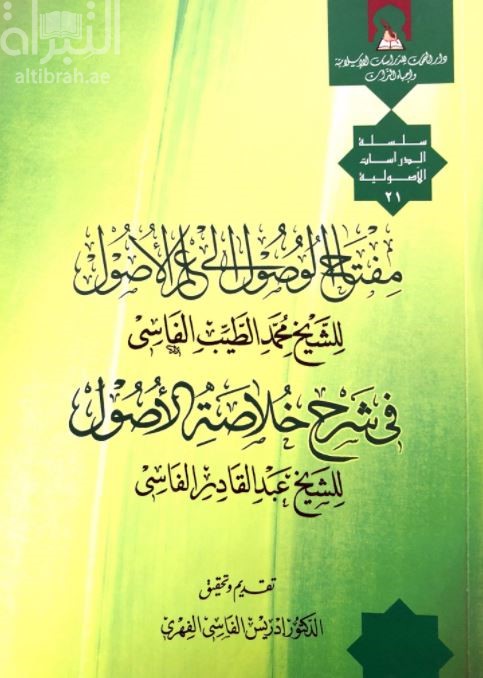 التبراة
altibrah.ae
دار البحوث للدراسات الإسلامية
وإحياء التراث
سلسلة
الدراسات
الأصولية
٢١
مفتاح الوصول إلى علم الأصول
للشيخ محمد الطيب الفاسي
في شرح خلاصة الأصول
للشيخ عبد القادر الفاسي
تقديم وتحقيق
الدكتور إدريس الفاسي الفهري